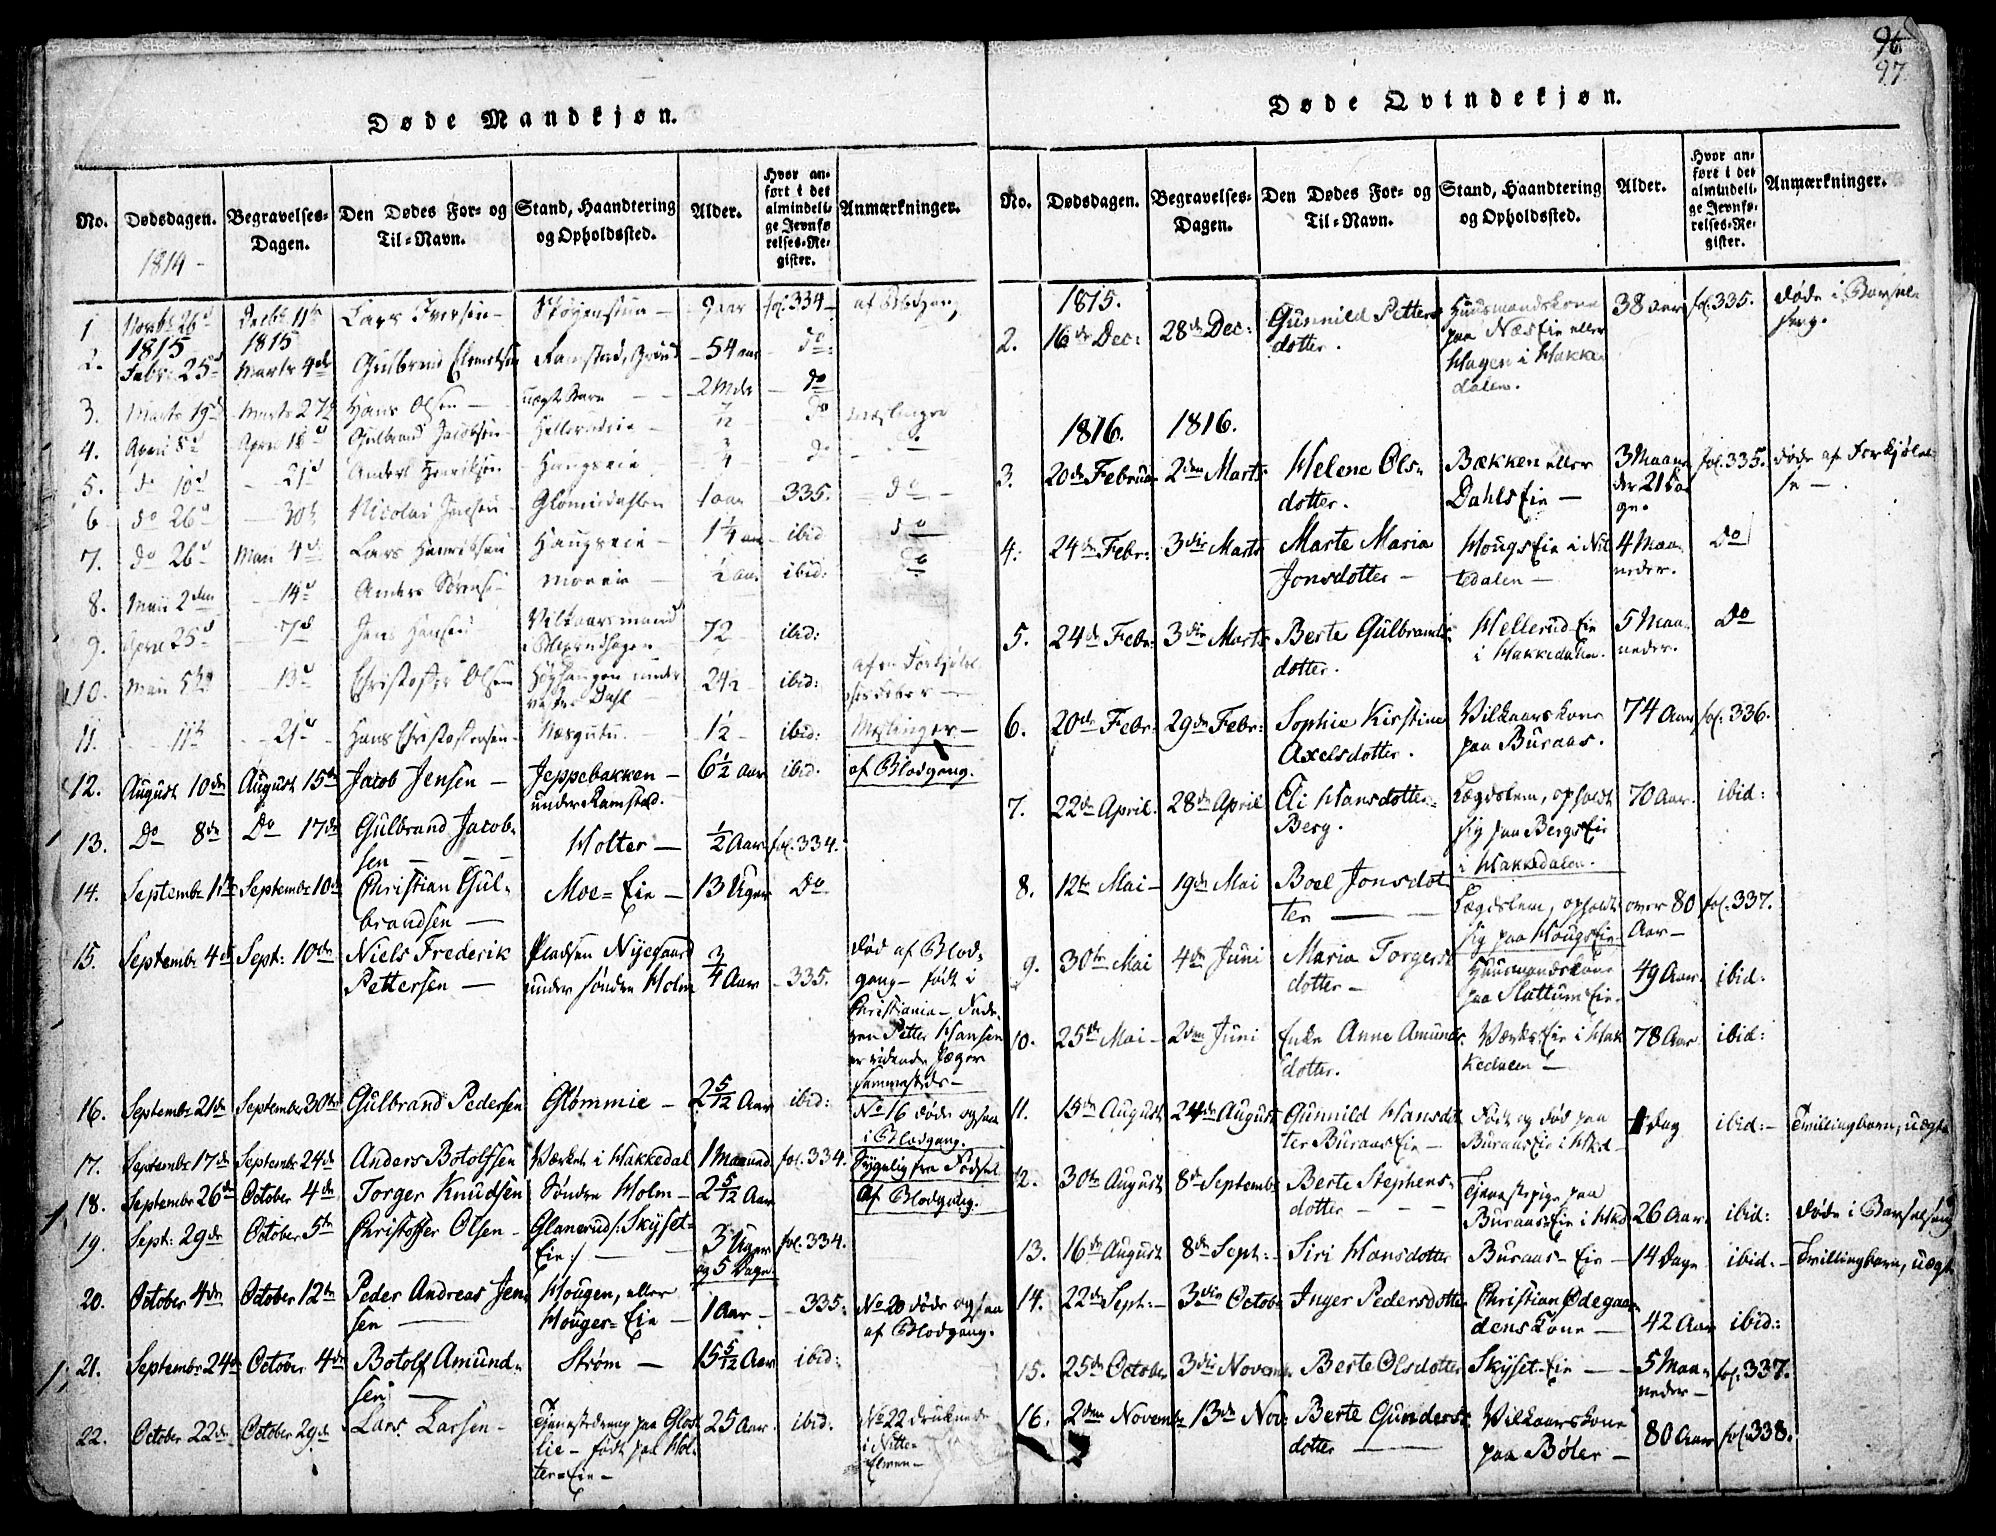 96
97
Døde Mandkjøn.
No. Dødsdagen. Begravelses-Dagen. Den Dødes For- og Til-Navn. Stand, Haandtering og Opholdssted. Alder. Hvor anført i det almindelige Jevnførelses-Register. Anmærkninger.
1814 -
1 Novbr 26d Decbr 11te Lars Iversen - 9 aar fol. 334 - af Blodgang
1815 1815
2. Febr: 25d Marts 4de Gulbrand - 54 aar do:
3. Marts 19d Marts 27d Hans Olsen - uægte Barn - 2 Mdr do
4. April 8d April 16d Gulbrand Jacobsen Hellerudeie - 1/2 do Meslinger
5. do 10d - 21d Anders Henriksen Haugseie 3/4 do - do
6 do 26d - 30te Nicolai Jensen - 1 aar 335. - do -
7. do 26d Maii 4d Lars Henriksen Haugseie - 1 1/4 aar ibid do
8. Maii 2den - 14d Anders Sørensen moeeie - 1/2 aar ibid: do
9. April 25d - 7d Jens Hansen Vilkaarsmand 72 ibid:
10. Maii 5te - 13d Christoffer Olsen Høyhaugen under vestre Dahl 24 1/2 ibid: af en Forkjølelsesfeber -
11. - 11te - 21d Hans Christophersen Næsgutu. 1 1/2 ibid: Meslinger -
12. August 10de August 15de Jacob Jensen - Jeppebakken - under Ramstad. 6 1/2 Aar ibid. af Blodgang.
13. Do 8de Do 17de Gulbrand Jacobsen - Holter - 1/2 Aar fol. 334.
14. Septembr 1ste Septembr 10de Christian Gulbrandsen - Moe=Eie - 13 Uger Do
15. Septembr 4de Sept: 10de Niels Frederik Pettersen - Pladsen Nyegaard under søndre Holm 3/4 Aar - 335. død af Blodgang - født i Christiania - Faderen Petter Hansen er ridende Jæger sammesteds -
16. Septembr 21de Septembr 30te Gulbrand Pedersen Glømmie - 2 5/12 Aar ibid: No 16 døde ogsaa i Blodgang.
17. Septembr 17de Septembr 24de Anders Botolfsen Værket i Hakkedal 1 Maaned fol. 334. Sygelig fra Fødsel.
18. Septembr 26de October 4de Torger Knudsen Søndre Holm - 2 5/12 Aar af Blodgang.
19. Sept: 29de October 5te Christoffer Olsen - Glanerud /: Skyset=Eie :/ - 3 Uger og 5 Dage. fol. 334.
20. October 4de October 12te Peder Andreas Jensen - Hougen, eller Houger=Eie - 1 Aar - - 335. No 20 døde ogsaa af Blodgang.
21. Septembr 24de October 4de Botolf Amundsen - Strøm - 15 5/12 Aar ibid:
22. October 22de October 29de Lars Larsen - Tjenestedreng paa Gloslie - født paa Holter=Eie - 25 Aar. ibid: No 22 druknede i Nitte-Elven -
Døde Qvindekjøn.
No. Dødsdagen. Begravelses-Dagen. Den Dødes For- og Til-Navn. Stand, Haandtering og Opholdssted. Alder. Hvor anført i det almindelige Jevnførelses-Register. Anmærkninger.
1815.
2. 16de Dec: 28de Dec: Gunnild Pettersdotter. Huusmandskone paa NæsEie eller Hagen i Hakkedalen. 38 aar fol. 335. døde i Barselseng.
1816. 1816.
3. 20de Februar 2den Marts Helene Olsdotter. Bækken eller DahlsEie - 3 Maaneder 21 Dage. fol. 335. døde af Forkjølelse -
4. 24de Febr: 3die Marts Marte Maria Jonsdotter - HougsEie i Nittedalen - 4 Maaneder. Do
5. 24de Febr: 3die Marts Berte Gulbrandsdotter. HellerudEie i Hakkedalen. 5 Maaneder. Do
6. 20de Febr: 29de Febr: Sophie Kirstine Axelsdotter. Vilkaarskone paa Buraas. 74 Aar fol. 336.
7. 22de April. 28de April Eli Hansdotter Berg. Lægdslem, opholdt sig paa BergsEie i Hakkedalen. 70 Aar. ibid:
8. 12te Mai - 19de Mai Boel Jonsdotter - Lægdslem, opholdt sig paa HougsEie - over 80 Aar - fol. 337.
9. 30te Mai 4de Juni Maria Torgersdotter - Huusmandskone paa SlattumsEie - 49 Aar. ibid:
10. 25de Mai - 2den Juni Enke Anne Amundsdotter. VærksEie i Hakkedalen - 78 Aar ibid:
11. 15de August 24de August Gunnild Hansdotter BuraasEie - Født og død paa BuraasEie i Hkd - 1 Dag ibid: - Tvillingbarn, uægte
12. 30te August 8de Septembr Berte Stephensdotter - - - Tjenestepige paa BuraasEie i Hkd 26 Aar. ibid: døde i Barselseng
13. 16de August 8de Sept: - Siri Hansdotter Buraas-Eie - 14 Dage ibid: - Tvillingbarn, uægte
14. 22de Sept: - 3die Octobr Inger Pedersdotter Christian Ødegaardens Kone - 42 Aar ibid:
15. 25de October 3die Novembr Berte Olsdotter Skyset=Eie - 5 Maaneder - fol. 337.
16. 2den Novembr 13de Nov: Berte Gundersdotter - Vilkaarskone paa Böler - 80 Aar fol. 338.